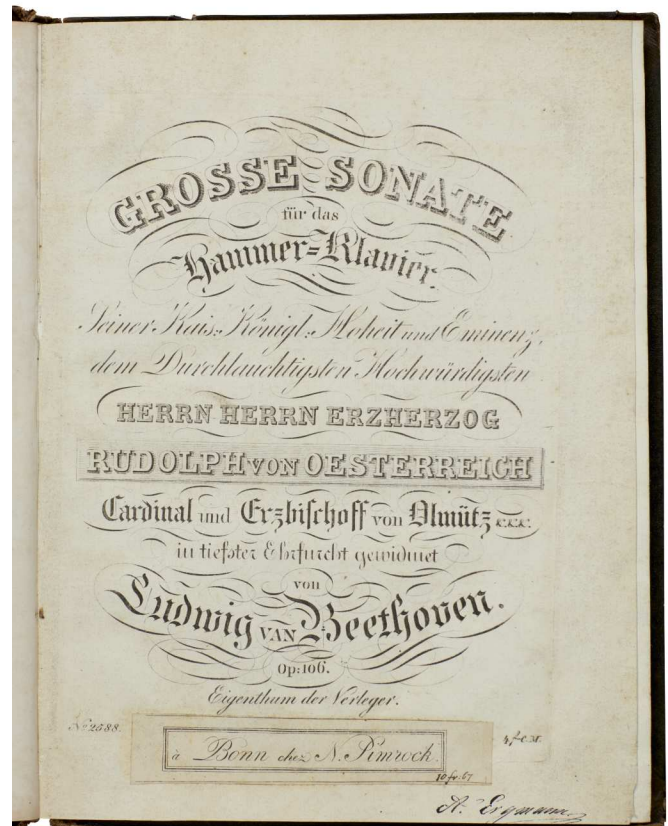 GROSSE SONATE
für das
Hammer=Klavier.
Seiner Kais: Königl: Hoheit und Eminenz,
dem Durchlauchtigsten Hochwürdigsten
HERRN HERRN ERZHERZOG
RUDOLPH VON OESTERREICH
Cardinal und Erzbischoff von Olmütz &c.&c.&c.
in tiefster Ehrfurcht gewidmet
von
Ludwig VAN Beethoven.
Op: 106.
Eigenthum der Verleger.
No 2588.
à Bonn chez N. Simrock.
10 fr. 67